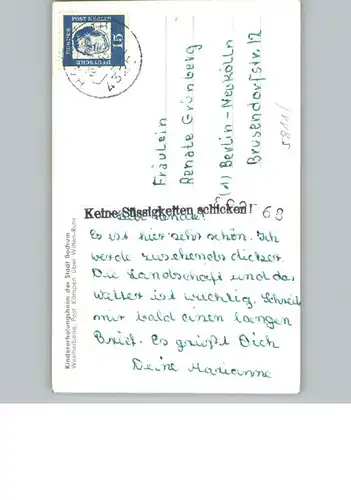 DEUTSCHE
BUNDESPOST
15
Fräulein
Renate Grünberg
(1) Berlin-Neukölln
Brusendorfstr. 12
5811/
Keine Süssigkeiten schicken!
68
Liebe Renate!
Es ist hier sehr schön. Ich
werde zusehends dicker.
Die Landschaft und das
Wetter ist wuchtig. Schreib
mir bald einen langen
Brief. Es grüßt Dich
Deine Marianne
Kindererholungsheim der Stadt Bochum
Westherbede, Post Kämpen über Witten-Ruhr